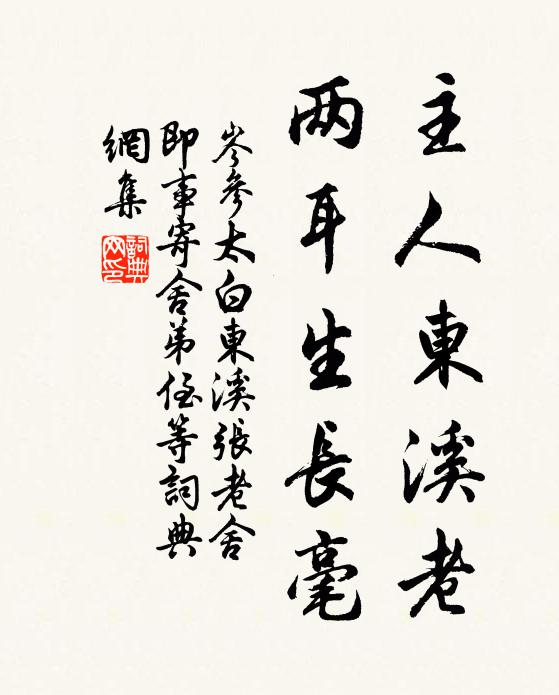 主人東溪老
两耳生長毫
岑參太白東溪張老舍
即事寄舍弟侄等詞典
網集
詞典
网印